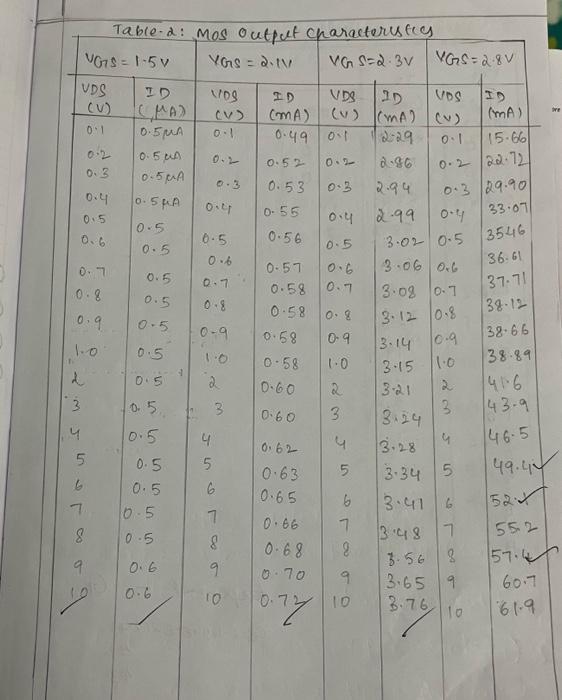 Table-2: Mos output characteristics
VGS = 1.5V VGS = 2.1V VGS=2.3V VGS=2.8V
VDS ID VDS ID VDS ID VDS ID
(V) (μA) (V) (mA) (V) (mA) (V) (mA)
0.1 0.5μA 0.1 0.49 0.1 2.29 0.1 15.66
0.2 0.5μA 0.2 0.52 0.2 2.86 0.2 22.72
0.3 0.5μA 0.3 0.53 0.3 2.94 0.3 29.90
0.4 0.5μA 0.4 0.55 0.4 2.99 0.4 33.07
0.5 0.5 0.5 0.56 0.5 3.02 0.5 35.46
0.6 0.5 0.6 0.57 0.6 3.06 0.6 36.61
0.7 0.5 0.7 0.58 0.7 3.08 0.7 37.71
0.8 0.5 0.8 0.58 0.8 3.12 0.8 38.12
0.9 0.5 0.9 0.58 0.9 3.14 0.9 38.66
1.0 0.5 1.0 0.58 1.0 3.15 1.0 38.89
2 0.5 2 0.60 2 3.21 2 41.6
3 0.5 3 0.60 3 3.24 3 43.9
4 0.5 4 0.62 4 3.28 4 46.5
5 0.5 5 0.63 5 3.34 5 49.4
6 0.5 6 0.65 6 3.41 6
7 0.5 7 0.66 7 3.48 7 55.2
8 0.5 8 0.68 8 3.56 8 57.4
9 0.6 9 0.70 9 3.65 9 60.7
10 0.6 10 0.72 10 3.76 10 61.9